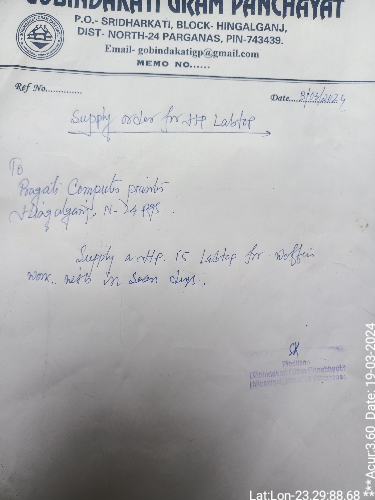 GOBINDAKATI GRAM PANCHAYAT
P.O.- SRIDHARKATI, BLOCK- HINGALGANJ,
DIST- NORTH-24 PARGANAS, PIN-743439.
Email- gobindakatigp@gmail.com
MEMO NO......
Ref No.............
Date....
Supply order for HP Labtop
To
Pragati Computer
Hingalganj, N- 24 pgs.
Supply a HP. 15 Labtop for
work. in days.
SK
Pradhan
Gobindakati Gram Panchayat
Lat:Lon-23.29:88.68
***Acur:3.60 Date: 19-03-2024